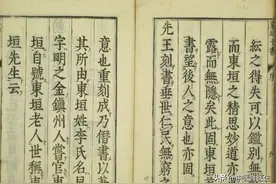 紜之得失可以鑑別
而東垣之精思妙道亦
露而無隱矣此固東垣
書望後人之意也亦固
先王刻書垂世仁民無窮
意也重刻成乃僭書以
其所由東垣姓李氏名
字明之金鎮州人嘗官
垣自號東垣老人世稱
垣先生云